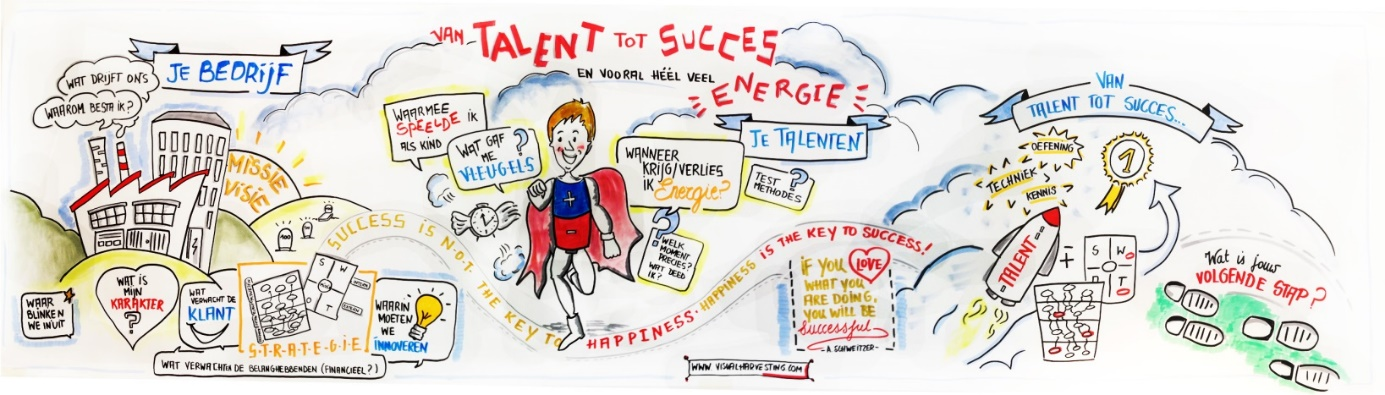 VAN TALENT TOT SUCCES
EN VOORAL HÉÉL VEEL
ENERGIE
JE BEDRIJF
WAT DRIJFT ONS
WAAROM BESTA IK?
MISSIE
VISIE
WAAR
BLINKEN
WE IN UIT
WAT IS
MIJN
KARAKTER
?
WAT
VERWACHT DE
KLANT
S W
O T
S-T-R-A-T-E-G-I-E
WAARIN
MOETEN
WE
INNOVEREN
WAT VERWACHTEN DE BELANGHEBBENDEN (FINANCIEEL?)
SUCCESS IS N.O.T. THE KEY TO HAPPINESS · HAPPINESS IS THE KEY TO SUCCESS!
WAARMEE
SPEELDE IK
ALS KIND
WAT GAF
ME ?
VLEUGELS
JE TALENTEN
WANNEER
KRIJG/VERLIES
IK Energie?
TEST ?
METHODES
?
WELK
MOMENT
PRECIES?
WAT DEED
IK?
IF YOU LOVE
WHAT YOU
ARE DOING,
YOU WILL BE
Successful
- A. SCHWEITZER -
WWW.VISUALHARVESTING.COM
VAN
TALENT TOT SUCCES...
OEFENING
TECHNIEK'S
KENNIS
1
TALENT
+
S W
O T
Wat is jouw
VOLGENDE STAP?